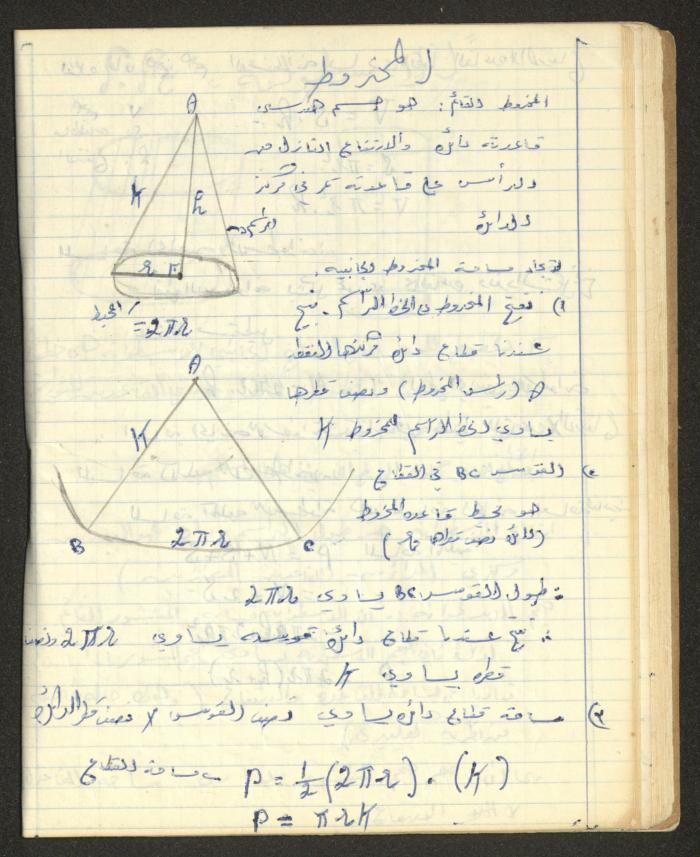 المخروط
المخروط القائم: هو جسم هندسي
قاعدته دائرة والارتفاع النازل من
الرأس على قاعدته تمر في مركز
الدائرة
A
K
h
الراسم
r
المحيط
= 2πr
لايجاد مساحة المخروط الجانبية.
١) نفتح المخروط من الخط الراسم. ينتج
عندنا قطاع دائرة مركزها النقطة
A (رأس المخروط) ونصف قطرها
يساوي الخط الراسم للمخروط K
A
K
B
2πr
C
٢) القوس BC في القطاع
هو محيط قاعدة المخروط
(دائرة نصف قطرها r)
∴ طول القوس BC يساوي 2πr
∴ ينتج عندنا قطاع دائرة قوسه يساوي 2πr ونصف
قطره يساوي K
٣) مساحة قطاع دائرة يساوي نصف القوس × نصف قطر الدائرة
مساحة القطاع P = 1/2 (2πr) · (K)
P = πrK